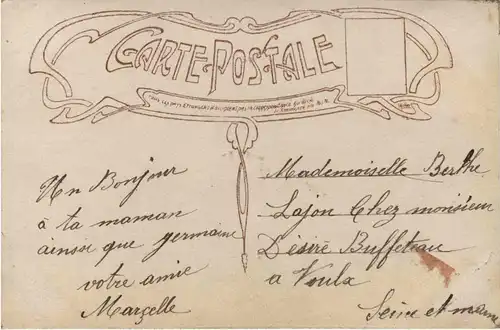 CARTE POSTALE
Un Bonjour
à ta maman
ainsie que germaine
votre amie
Marcelle
Mademoiselle Berthe
Lajon Chez monsieur
Désiré Buffeteau
a Voulx
Seine et marne